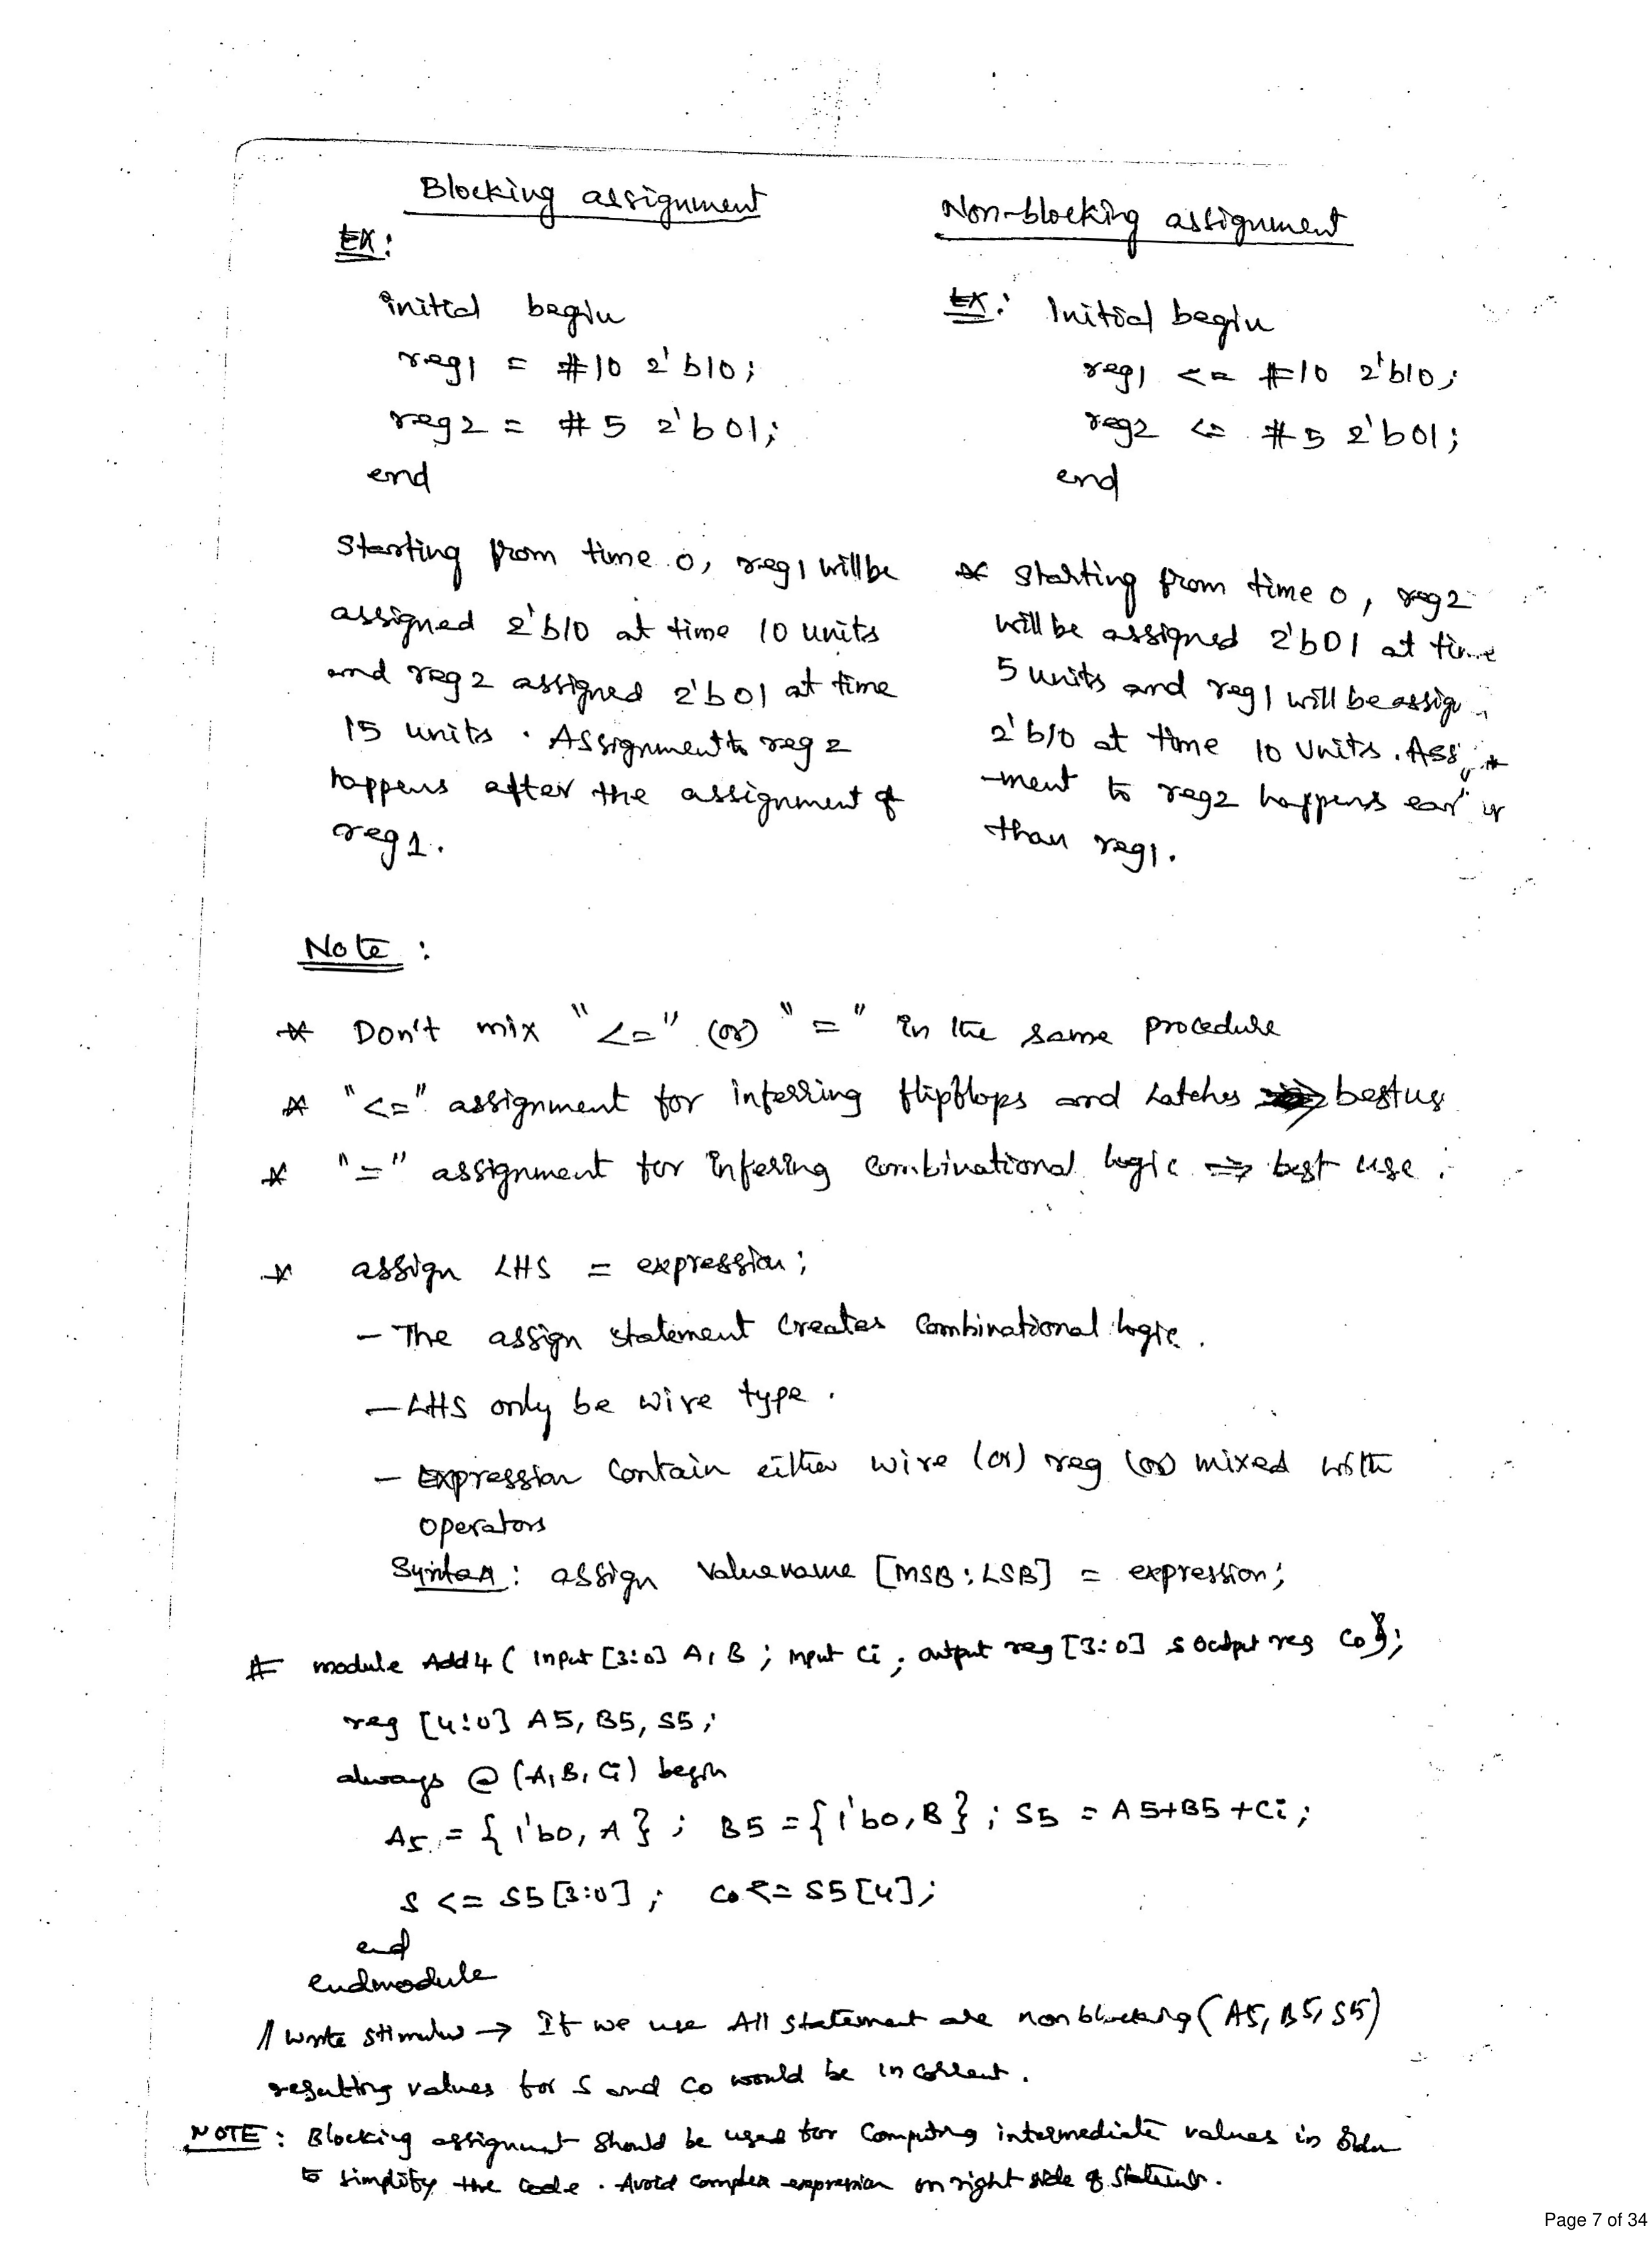 Blocking assignment
EX:
initial begin
reg1 = #10 2'b10;
reg2 = #5 2'b01;
end
Starting from time 0, reg1 will be
assigned 2'b10 at time 10 units
and reg2 assigned 2'b01 at time
15 units. Assignment to reg2
happens after the assignment of
reg1.
Non-blocking assignment
EX: Initial begin
reg1 <= #10 2'b10;
reg2 <= #5 2'b01;
end
* Starting from time 0, reg2
will be assigned 2'b01 at time
5 units and reg1 will be assig
2'b10 at time 10 units. Ass
-ment to reg2 happens
than reg1.
Note :
* Don't mix "<=" (or) "=" in the same procedure
* "<=" assignment for inferring flipflops and Latches => best us
* "=" assignment for infering Combinational logic => best use.
* assign LHS = expression;
- The assign statement Creates Combinational logic.
- LHS only be wire type.
- Expression Contain either wire (or) reg (or) mixed with
operators
Syntax: assign valuename [MSB:LSB] = expression;
# module Add4 ( input [3:0] A, B ; input Ci ; output reg [3:0] S output reg Co);
reg [4:0] A5, B5, S5;
always @ (A, B, Ci) begin
A5 = {1'b0, A} ; B5 = {1'b0, B} ; S5 = A5+B5+Ci;
S <= S5[3:0] ; Co <= S5[4];
end
endmodule
// write stimulus → If we use All statement are nonblocking (A5, B5, S5)
resulting values for S and Co would be incorrect.
NOTE : Blocking assignment Should be used for Computing intermediate values in order
to simplify the code. Avoid complex expression on right side of Statement.
Page 7 of 34